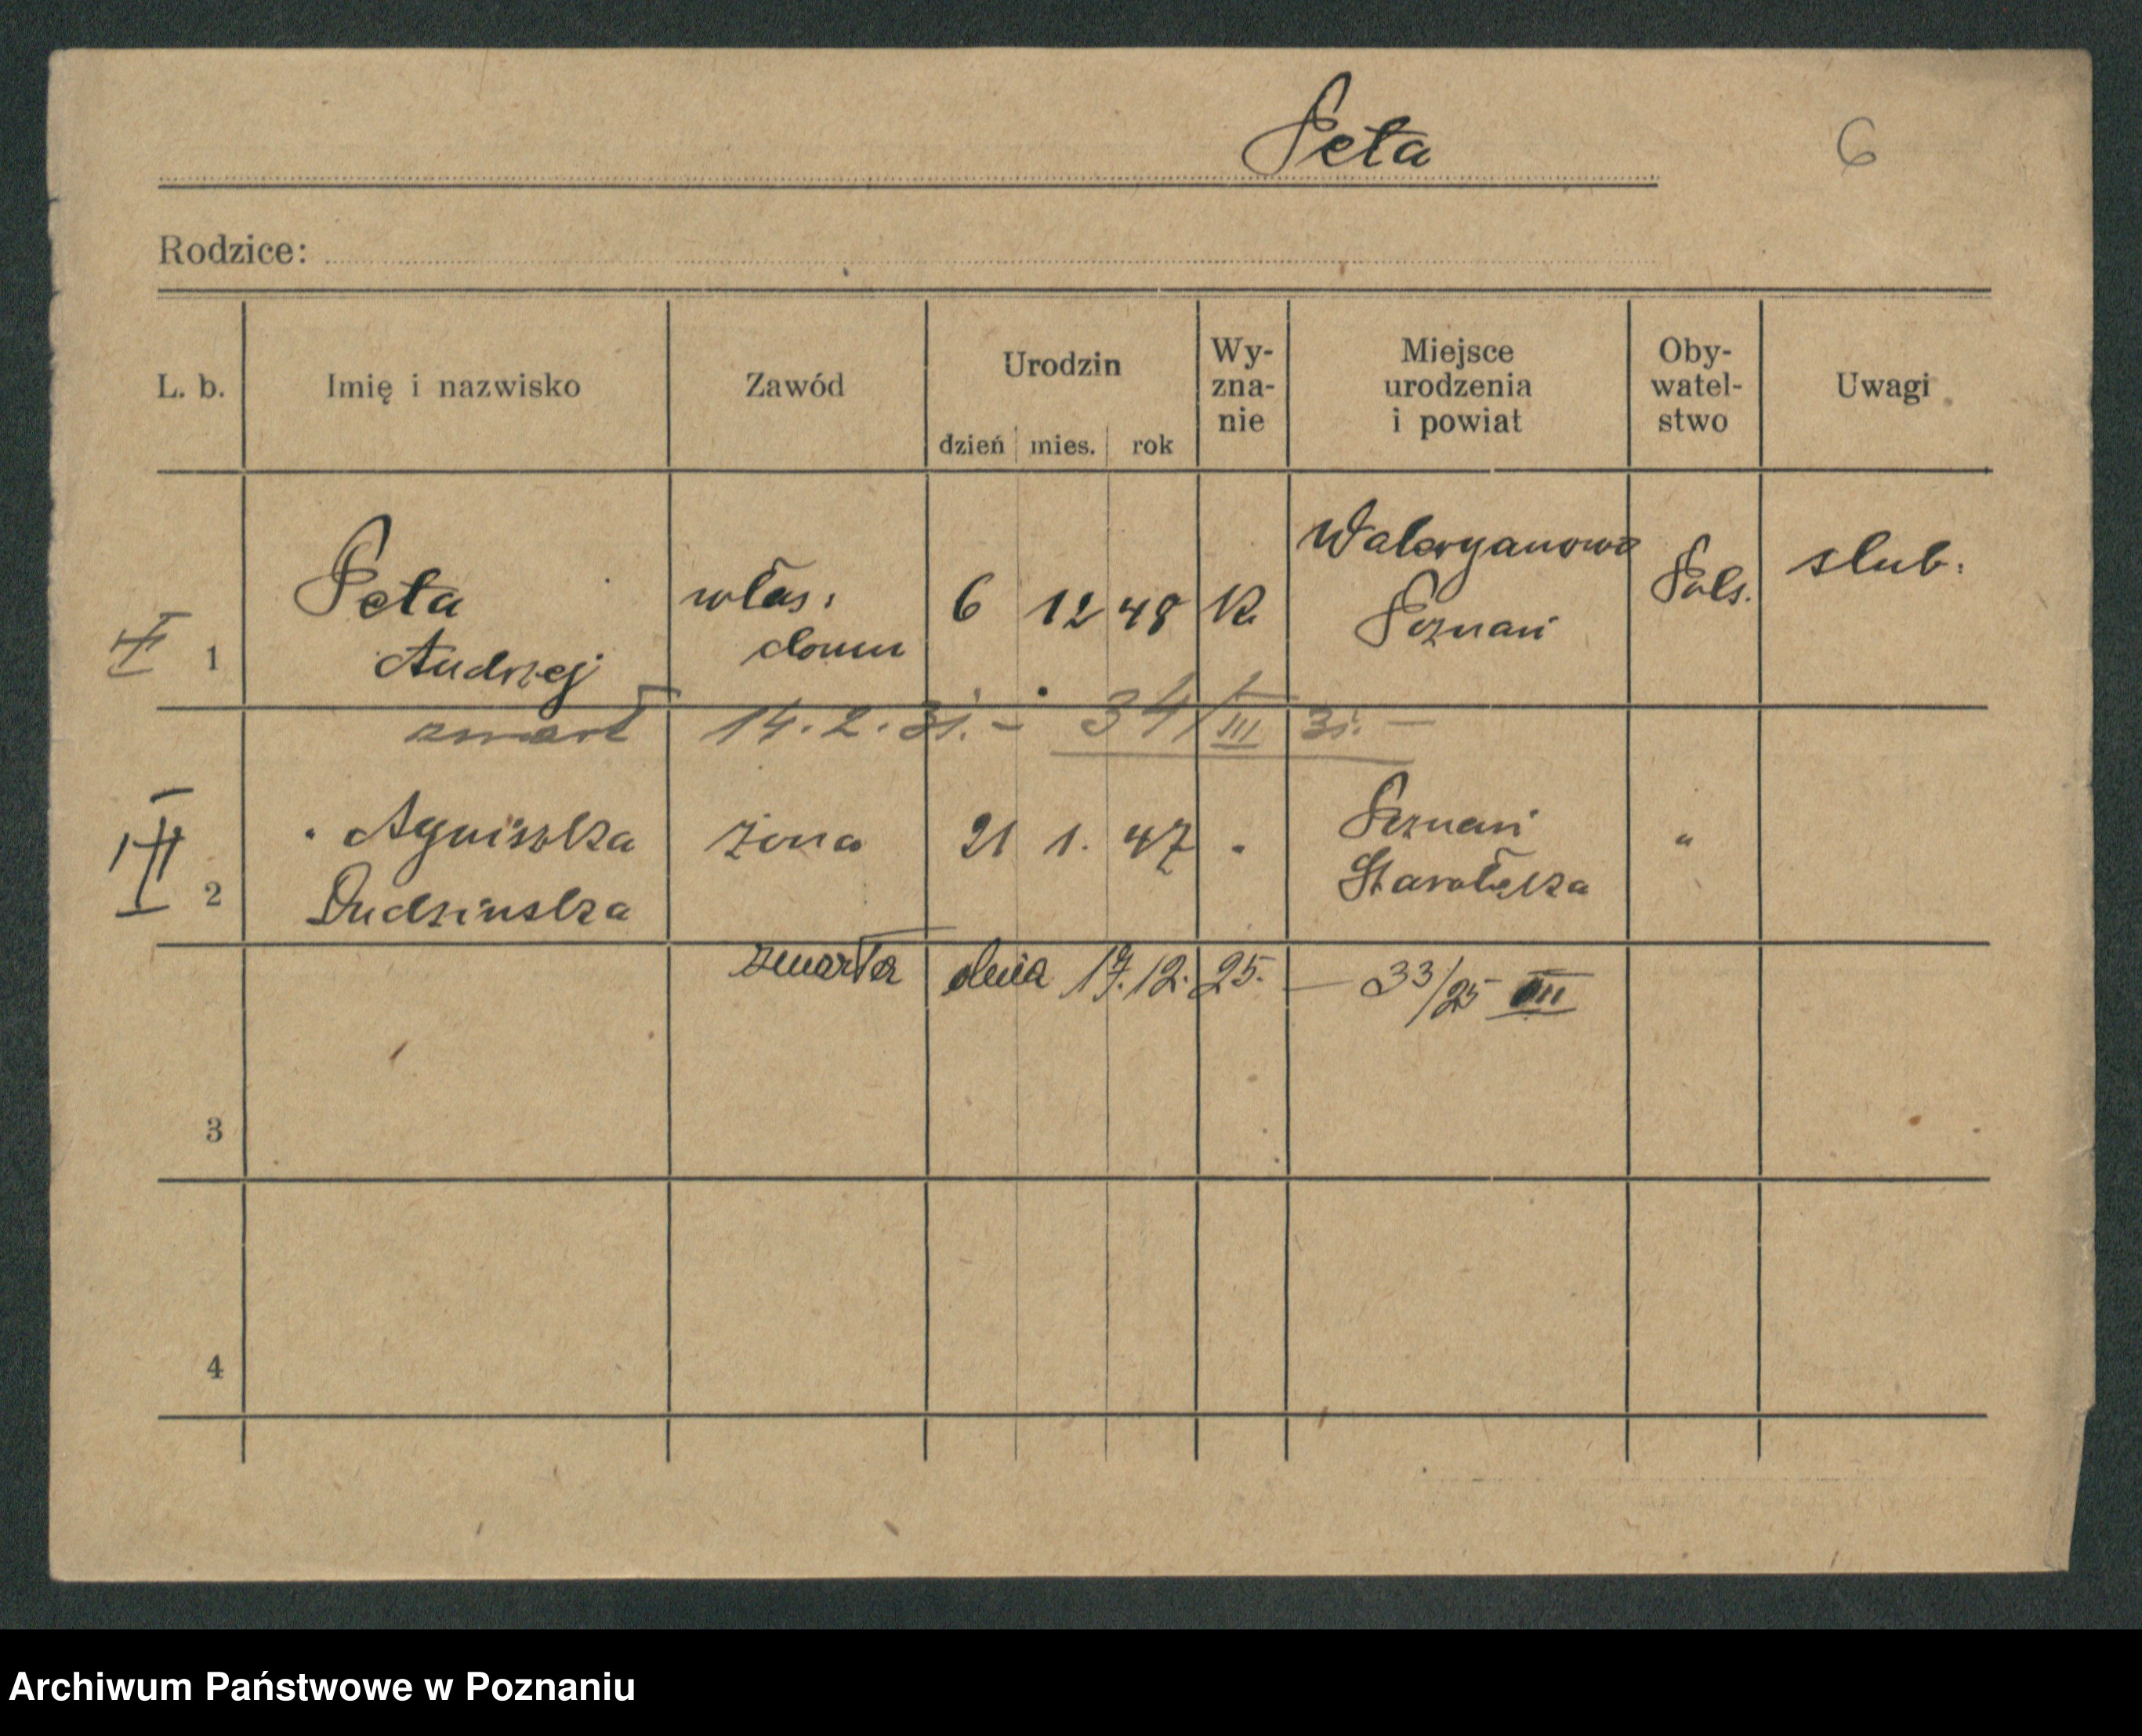 Peta
6
Rodzice:
L. b.
Imię i nazwisko
Zawód
Urodzin
dzień mies. rok
Wy-
zna-
nie
Miejsce
urodzenia
i powiat
Oby-
watel-
stwo
Uwagi
1
Peta
Andrzej
włas.
domu
6 12 48
K
Waleryanowo
Poznań
Pols.
slub.
zmarł 14.2.31. – 34/III 31. –
2
Agniszka
Dudzinska
żona
21 1. 47
"
Poznań
Starołęka
"
zmarła dnia 17.12.25. – 33/25 III
3
4
Archiwum Państwowe w Poznaniu